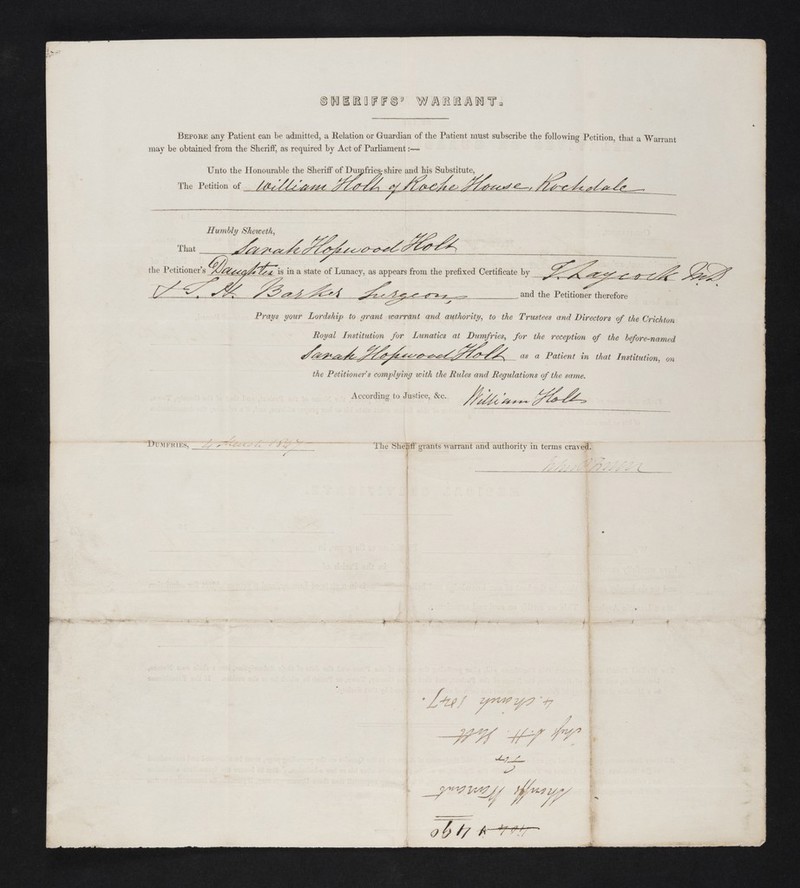 SHERIFFS' WARRANT.
BEFORE any Patient can be admitted, a Relation or Guardian of the Patient must subscribe the following Petition, that a Warrant
may be obtained from the Sheriff, as required by Act of Parliament:—
Unto the Honourable the Sheriff of Dumfries-shire and his Substitute,
The Petition of William Holt of Roche House, Rochdale
Humbly Sheweth,
That Sarah Hopwood Holt
the Petitioner's Daughter is in a state of Lunacy, as appears from the prefixed Certificate by T. Laycock M.D.
& T. H. Barker Surgeon, and the Petitioner therefore
Prays your Lordship to grant warrant and authority, to the Trustees and Directors of the Crichton
Royal Institution for Lunatics at Dumfries, for the reception of the before-named
Sarah Hopwood Holt as a Patient in that Institution, on
the Petitioner's complying with the Rules and Regulations of the same.
According to Justice, &c. William Holt
DUMFRIES, 4 March 1847 The Sheriff grants warrant and authority in terms craved.
4. March 1847.
Miss S. H. Holt
for
Sheriffs Warrant